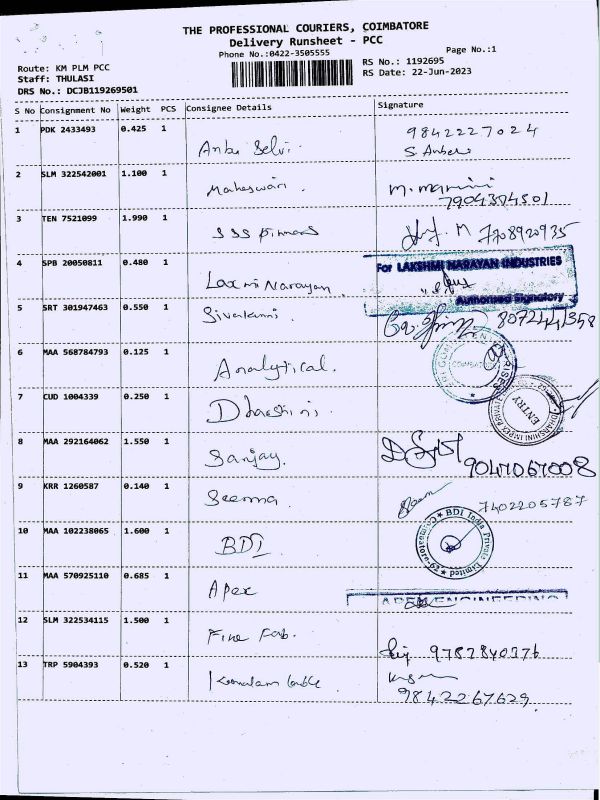 THE PROFESSIONAL COURIERS, COIMBATORE
Delivery Runsheet - PCC
Phone No.:0422-3505555
Page No.:1
Route: KM PLM PCC
RS No.: 1192695
Staff: THULASI
RS Date: 22-Jun-2023
DRS No.: DCJB119269501
S No Consignment No Weight PCS Consignee Details Signature
1 PDK 2433493 0.425 1 Anbu Selvi. 9842227024
2 SLM 322542001 1.100 1 Maheswari.
3 TEN 7521099 1.990 1 SSS M 7708920935
4 SPB 20050811 0.480 1 Laxmi Narayan.
For LAKSHMI NARAYAN INDUSTRIES
Authorised Signatory
5 SRT 301947463 0.550 1
6 MAA 568784793 0.125 1 Analytical.
7 CUD 1004339 0.250 1 Dharshini.
DHARSHINI IMPEX PRIVATE
ENTRY
8 MAA 292164062 1.550 1 Sanjay. 9047067008
9 KRR 1260587 0.140 1 Seema 7402205787
10 MAA 102238065 1.600 1 BDI
BDI India Private Limited
11 MAA 570925110 0.685 1 Apex
APEX ENGINEERING
12 SLM 322534115 1.500 1 Fine Fab.
13 TRP 5904393 0.520 1
9842267629